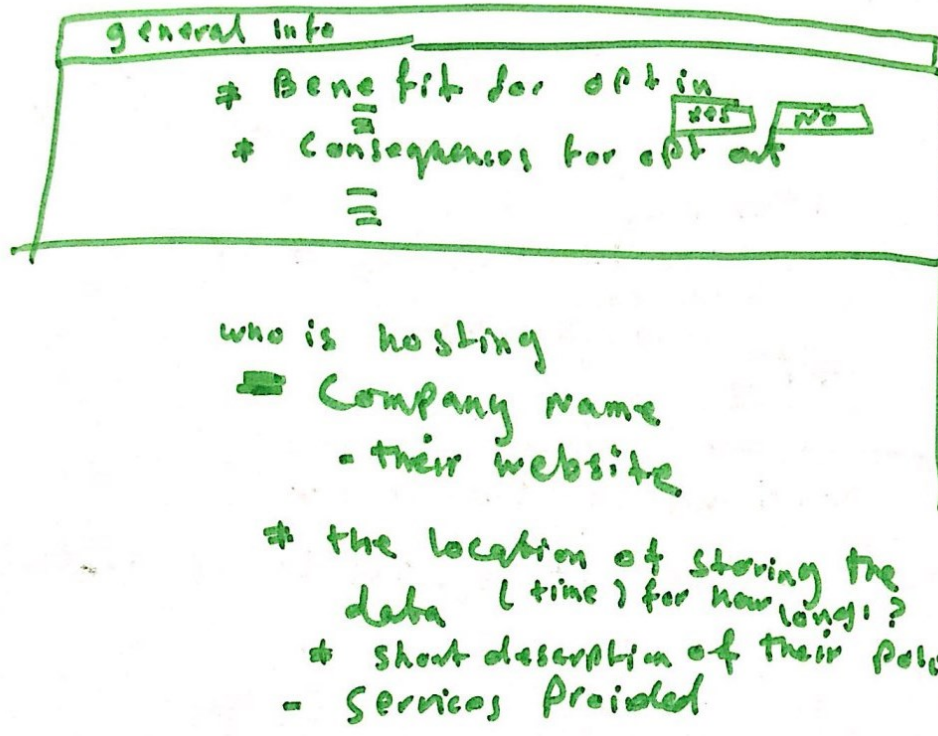 general info
* Benefit for opt in
yes NO
* Consequences for opt out
who is hosting
Company Name
- their website
* the location of storing the
data (time) for how long?
* short descrption of their
- Services Proided